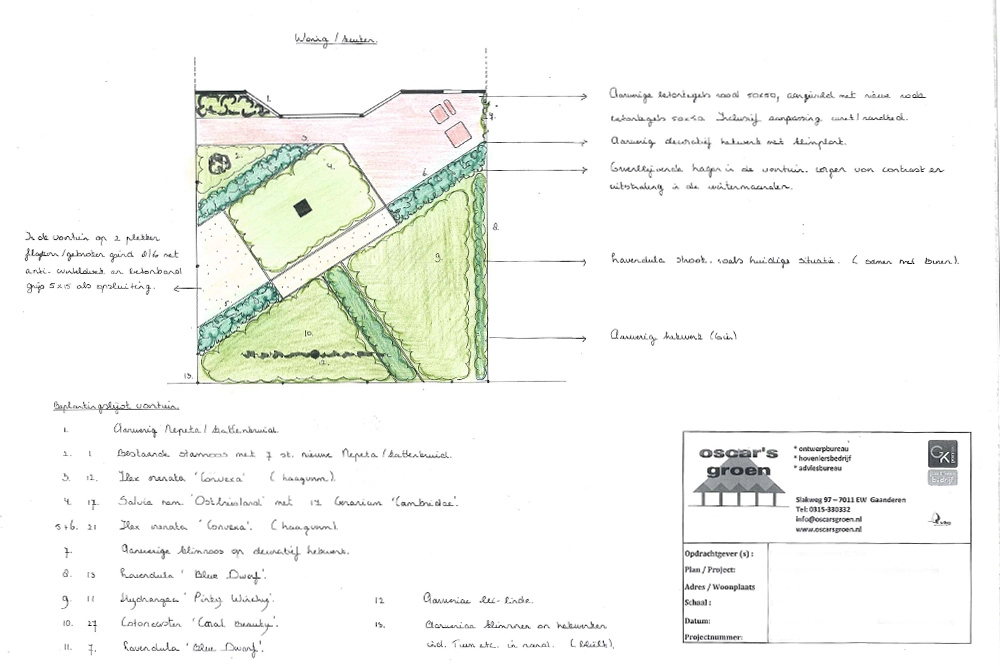 Woning / keuken.
1.
2.
3.
4.
5.
6.
7.
8.
9.
10.
12.
13.
Aanwezige betontegels rood 50x50, aangevuld met nieuwe rode
betontegels 50x50 Inclusief aanpassing
Aanwezig decoratief hekwerk met klimplant.
Groenblijvende hagen in de voortuin. zorgen van contrast en
uitstraling in de wintermaanden.
Lavendula strook. zoals huidige situatie. ( samen met buren).
Aanwezig hekwerk
In de voortuin op 2 plekken
gebroken grind 8/16 met
anti- worteldoek en betonband
grijs 5x15 als opsluiting.
Beplantingslijst voortuin.
1. Aanwezig Nepeta / kattenkruid.
2. 1 Bestaande stamroos met 7 st. nieuwe Nepeta / kattenkruid.
3. 12. Ilex crenata 'Convexa' ( haagvorm).
4. 17. Salvia nem. 'Ostfriesland' met 17 Geranium 'Cambridge'.
5+6. 21 Ilex crenata 'Convexa'. ( haagvorm)
7. Aanwezige klimroos op decoratief hekwerk.
8. 13 Lavendula 'Blue Dwarf'.
9. 11 Hydrangea 'Pinky Winky'.
10. 27 Cotoneaster 'Coral Beauty'.
11. 7. Lavendula 'Blue Dwarf'.
12 Aanwezige lei-linde.
13. Aanwezige klimmers en hekwerken
(blijft).
oscar's
groen
* ontwerpbureau
* hoveniersbedrijf
* adviesbureau
Slakweg 97 – 7011 EW Gaanderen
Tel: 0315-330332
info@oscarsgroen.nl
www.oscarsgroen.nl
Opdrachtgever (s) :
Plan / Project:
Adres / Woonplaats
Schaal :
Datum:
Projectnummer: